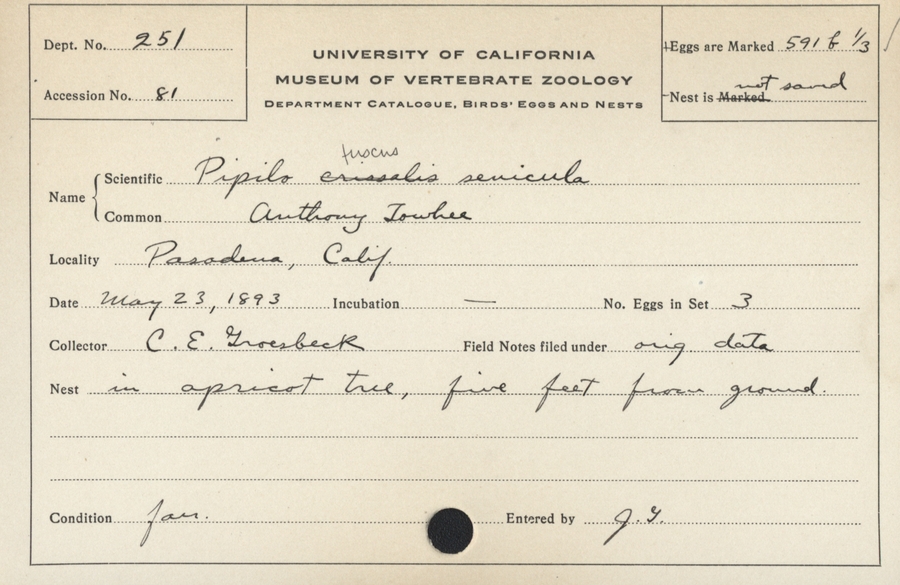 Dept. No. 251
Accession No. 81
UNIVERSITY OF CALIFORNIA
MUSEUM OF VERTEBRATE ZOOLOGY
DEPARTMENT CATALOGUE, BIRDS' EGGS AND NESTS
Eggs are Marked 591 b 1/3
not saved
Nest is Marked
fuscus
Name Scientific Pipilo crissalis senicula
Common Anthony Towhee
Locality Pasadena, Calif.
Date May 23, 1893 Incubation — No. Eggs in Set 3
Collector C. E. Groesbeck Field Notes filed under orig data
Nest in apricot tree, five feet from ground.
Condition fair. Entered by J. G.